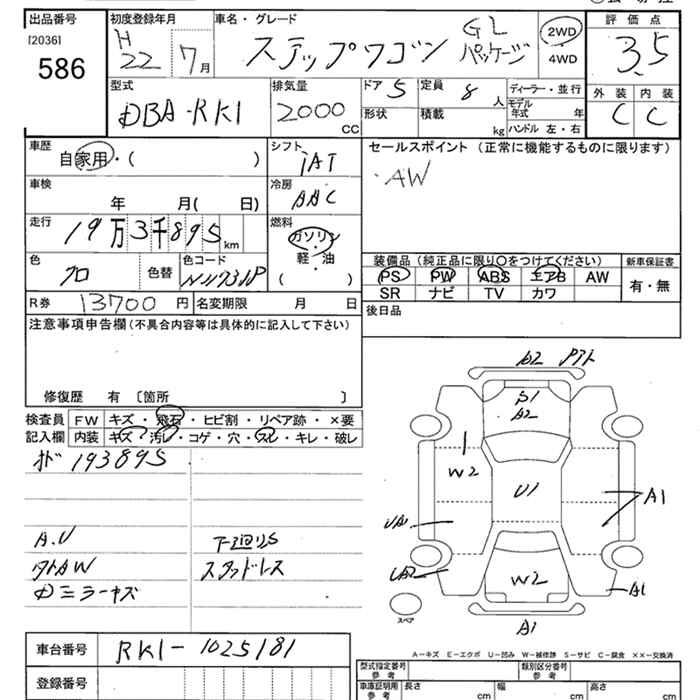 出品番号
[2036]
586
初度登録年月
H
22 7月
車名・グレード
ステップワゴン GL
パッケージ
2WD
4WD
評価点
3.5
外装 内装
C C
型式
DBA-RK1
排気量
2000
CC
ドア 5
形状
定員 8人
積載 kg
ディーラー・並行
モデル年式 年
ハンドル 左・右
車歴
自家用・( )
シフト
IAT
車検
年 月( 日)
冷房
AAC
走行
19万3千895km
燃料
ガソリン
・
軽・油
( )
色
クロ
色替
色コード
R券 13700円
名変期限 月 日
セールスポイント (正常に機能するものに限ります)
・AW
装備品 (純正品に限り○をつけてください)
PS PW ABS エアB AW
SR ナビ TV カワ
新車保証書
有・無
後日品
注意事項申告欄 (不具合内容等は具体的に記入して下さい)
修復歴 有 〔箇所 〕
検査員
記入欄
FW キズ・飛石・ヒビ割・リペア跡・×要
内装 キズ・汚レ・コゲ・穴・スレ・キレ・破レ
メーター 193895
A.U
下廻りS
タトAW
スタッドレス
Dミラーキズ
A2
S1
A2
W2
U1
UA1
UA2
A1
W2
A1
A1
スペア
車台番号 RK1-1025181
登録番号
A－キズ E－エクボ U－凹み W－補修跡 S－サビ C－腐食 ××－交換済
型式指定番号
参考
類別区分番号
参考
車庫証明用
参考
長さ cm
幅 cm
高さ cm